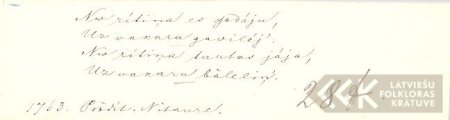 No rītiņa es godāju,
Uz vakara gavilēj.
No rītiņa tautas jāja,
Uz vakara bāleliņ.
284
1763. Nītaurē.
LATVIEŠU
FOLKLORAS
KRĀTUVE